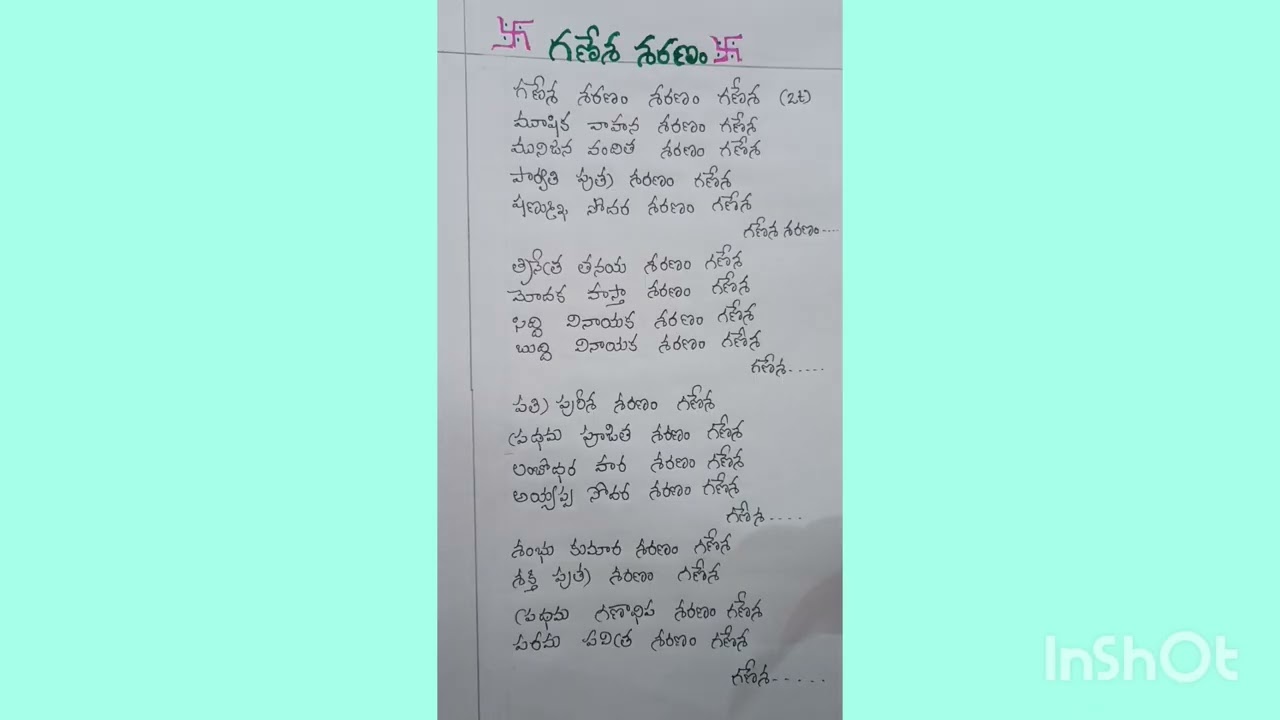 卐 గణేశ శరణం 卐
గణేశ శరణం శరణం గణేశ (2t)
మూషిక వాహన శరణం గణేశ
మునిజన వందిత శరణం గణేశ
పార్వతి పుత్ర శరణం గణేశ
షణ్ముఖ సోదర శరణం గణేశ
గణేశ శరణం....
త్రినేత్ర తనయ శరణం గణేశ
మోదక హస్తా శరణం గణేశ
సిద్ది వినాయక శరణం గణేశ
బుద్ది వినాయక శరణం గణేశ
గణేశ.....
పత్రి పురీశ శరణం గణేశ
ప్రథమ పూజిత శరణం గణేశ
లంబోధర హర శరణం గణేశ
అయ్యప్ప సోదర శరణం గణేశ
గణేశ....
శంభు కుమార శరణం గణేశ
శక్తి పుత్ర శరణం గణేశ
ప్రథమ గణాధిప శరణం గణేశ
పరమ పవిత్ర శరణం గణేశ
గణేశ.....
InShOt